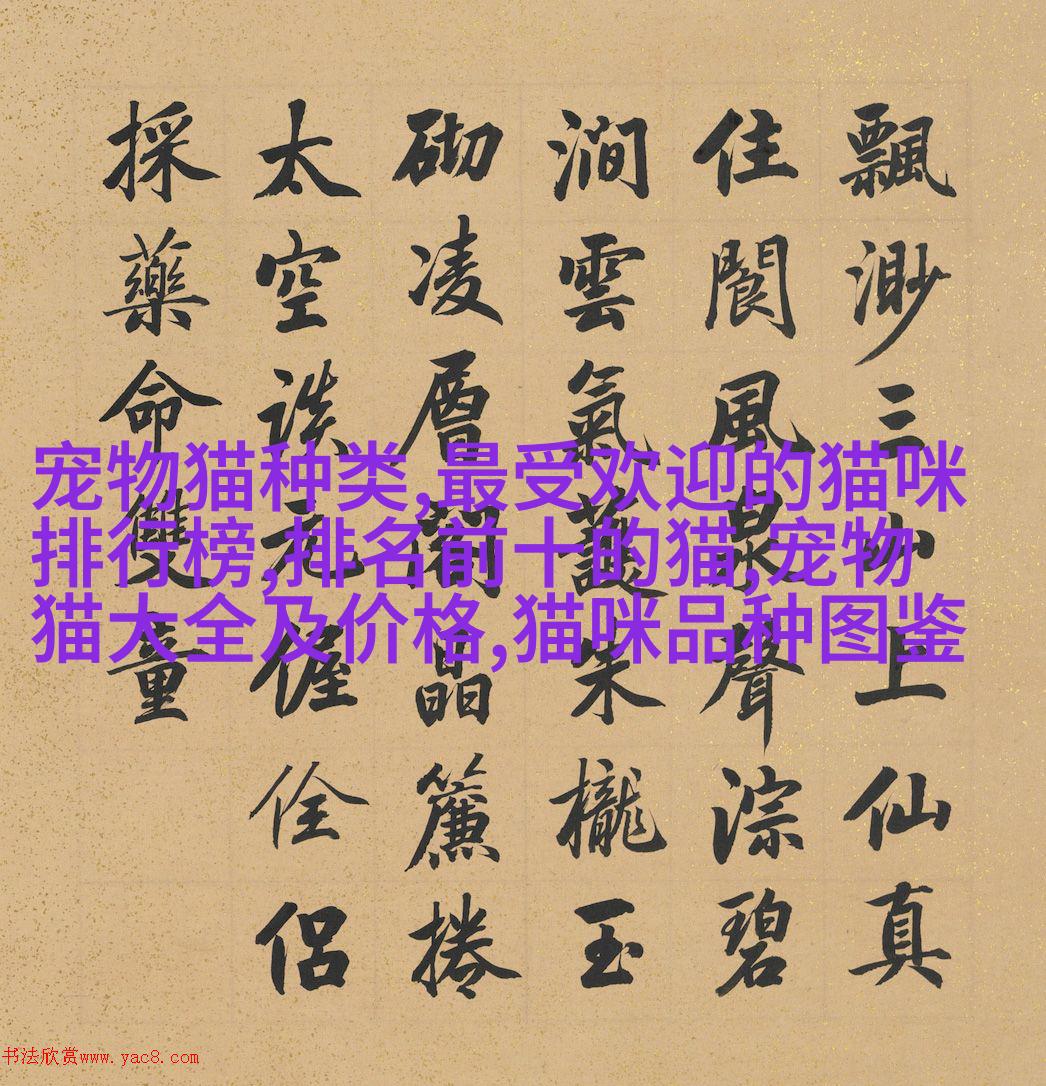 飄渺三山上仙真
住閬風泉聲淙碧
澗雲氣護朱櫳玉
砌凌層晶簾捲
太空偓佺侶
採藥命雙童
宠物猫种类,最受欢迎的猫咪
排行榜,排名前十的猫,宠物
猫大全及价格,猫咪品种图鉴
书法欣赏www.yac8.com